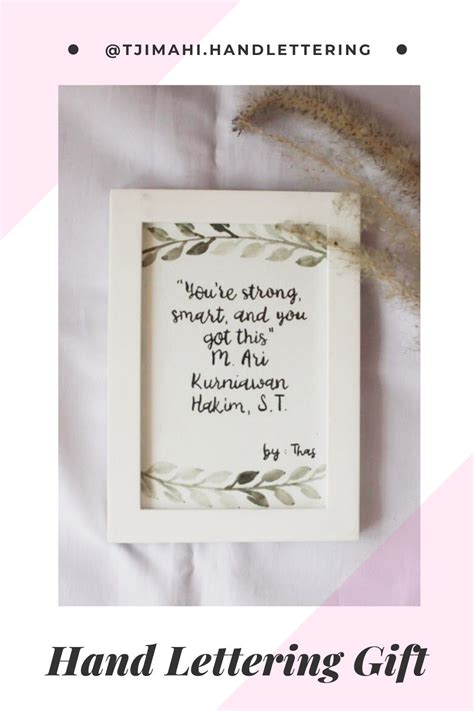 @TJIMAHI.HANDLETTERING
"You're strong,
smart, and you
got this"
M. Ari
Kurniawan
Hakim, S.T.
by : Thas
Hand Lettering Gift